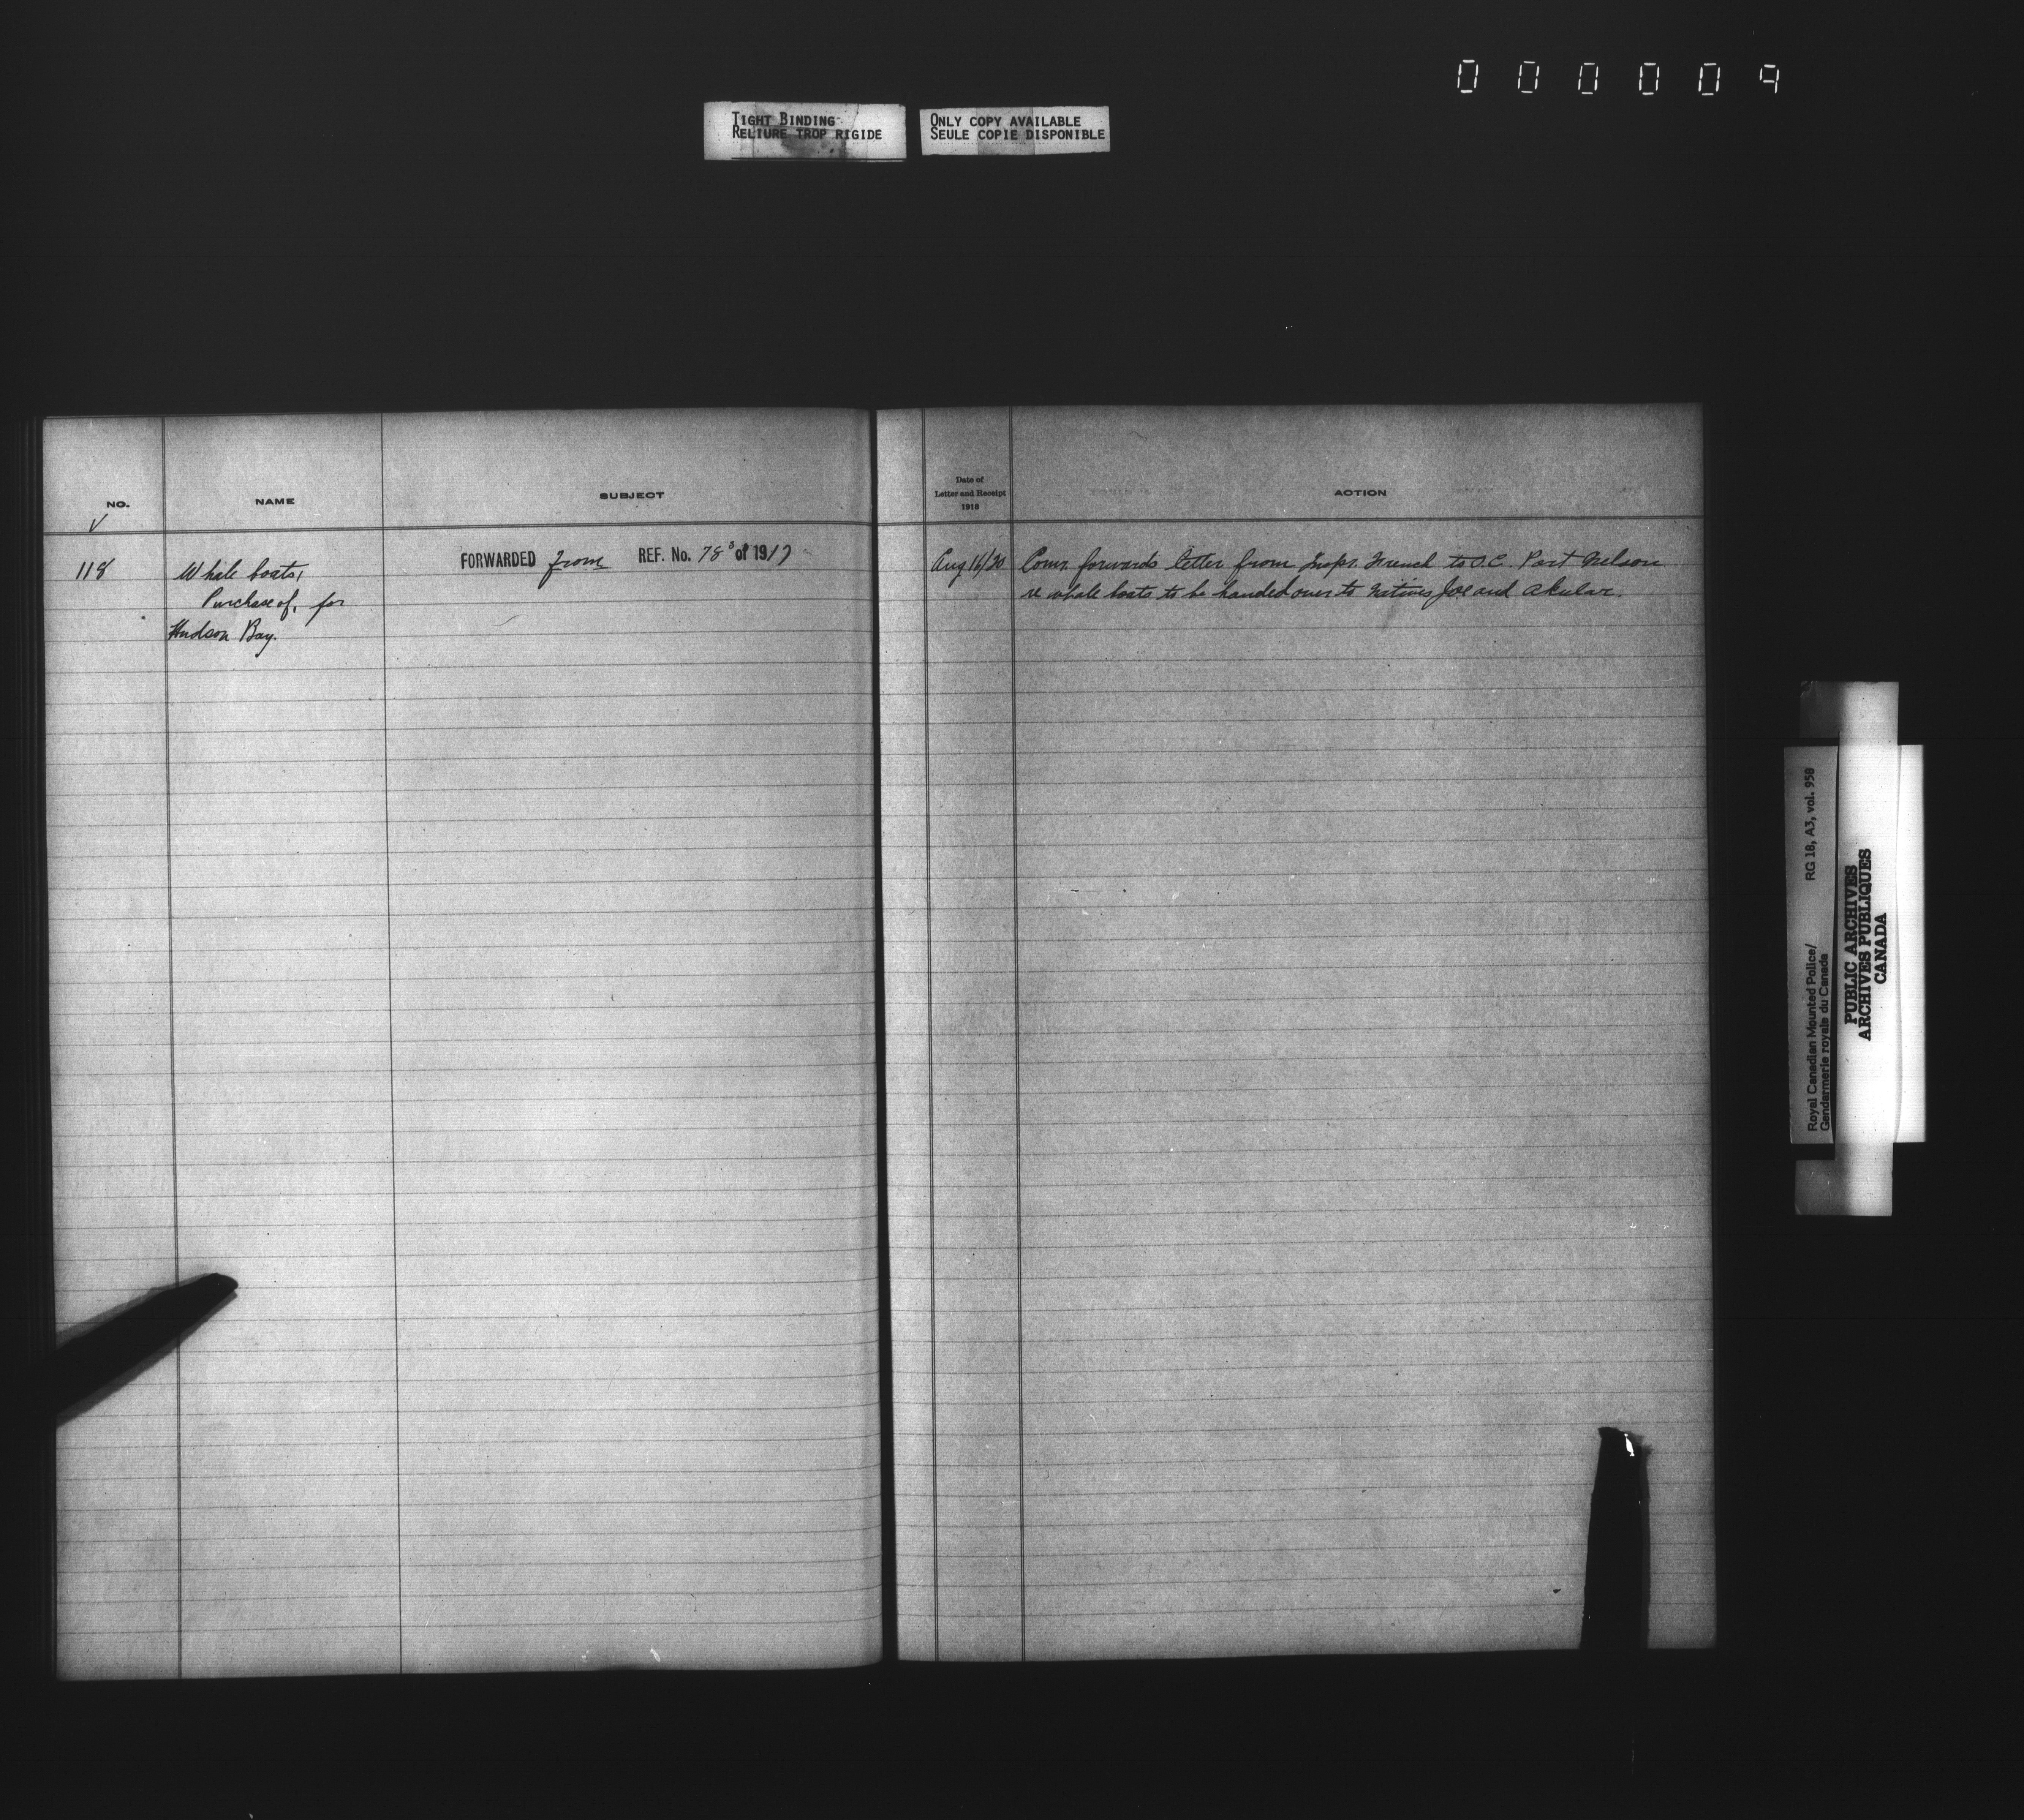 000009
TIGHT BINDING
RELIURE TROP RIGIDE
ONLY COPY AVAILABLE
SEULE COPIE DISPONIBLE
NO.
NAME
SUBJECT
118
Whale boats,
Purchase of, for
Hudson Bay.
FORWARDED from REF. No. 78³ of 1917
Date of
Letter and Receipt
1918
ACTION
Aug 16/20
Comr. forwards letter from Inspr. French to O.C. Port Nelson
re whale boats to be handed over to natives Joe and Akular.
Royal Canadian Mounted Police/
Gendarmerie royale du Canada
RG 18, A3, vol. 958
PUBLIC ARCHIVES
ARCHIVES PUBLIQUES
CANADA